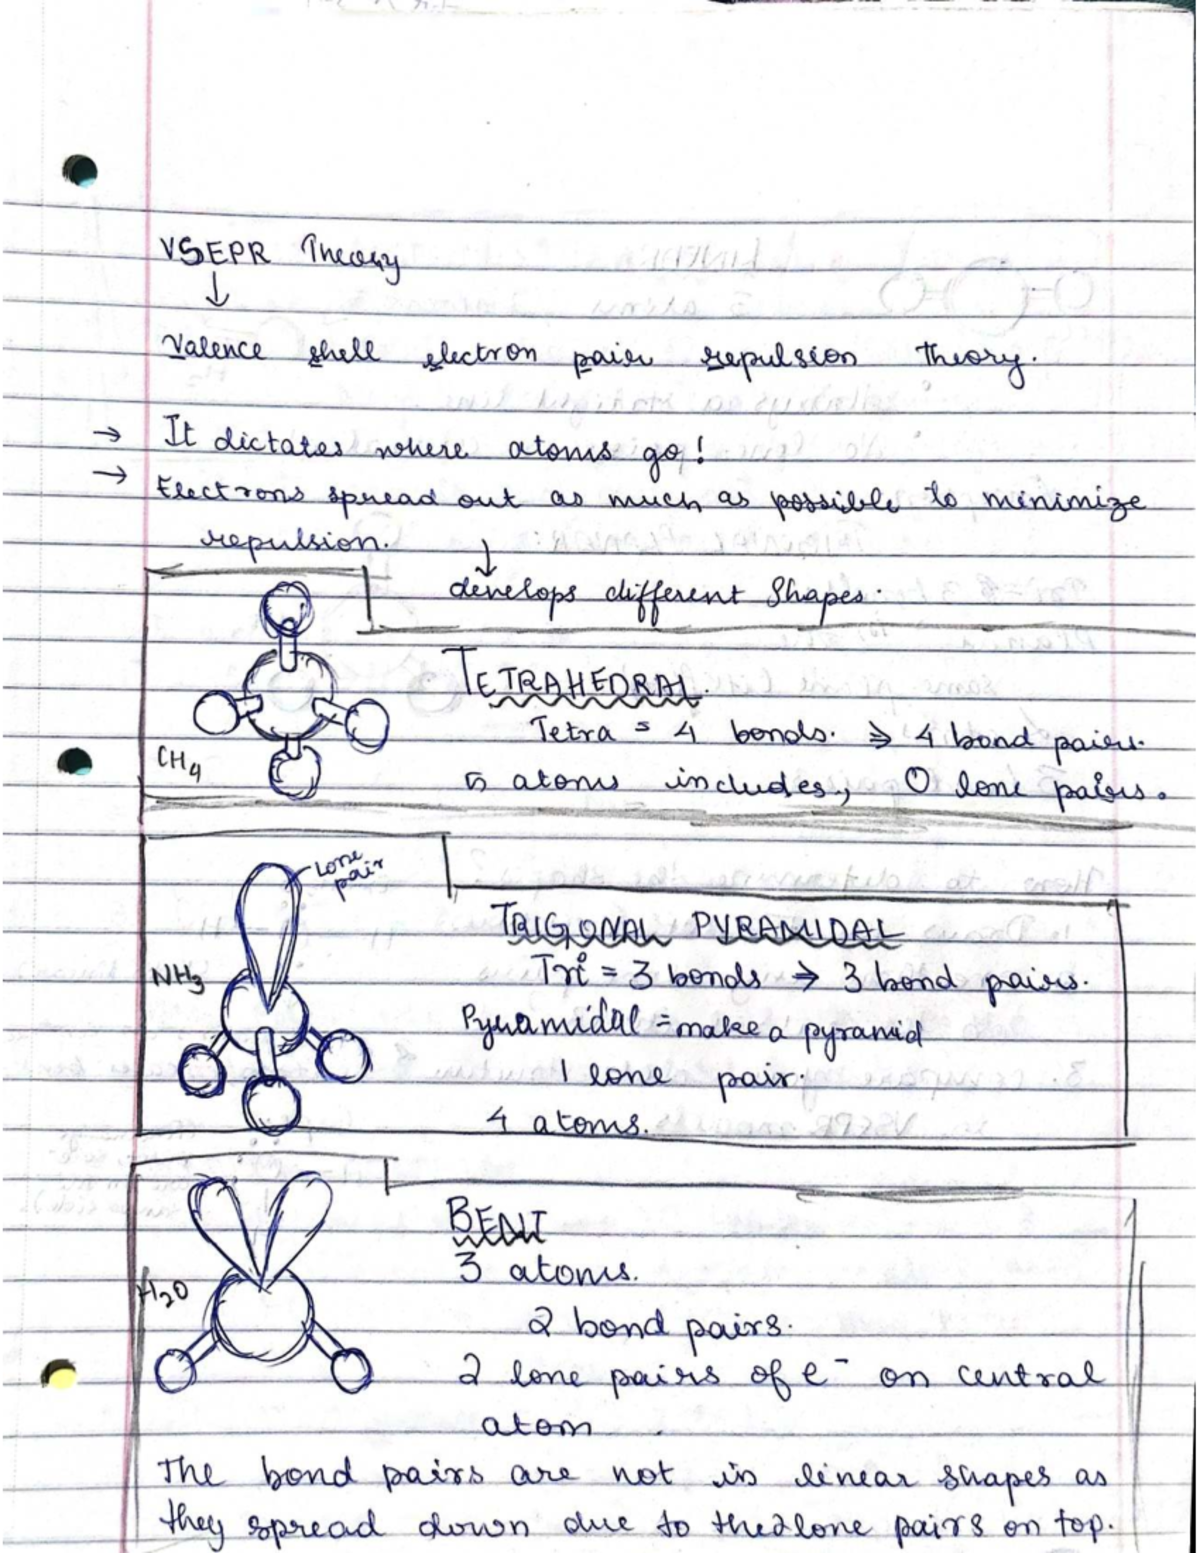 VSEPR Theory
↓
Valence shell electron pair repulsion Theory.
→ It dictates where atoms go!
→ Electrons spread out as much as possible to minimize
repulsion. ↓
develops different Shapes.
TETRAHEDRAL.
Tetra = 4 bonds. ⇒ 4 bond pairs.
CH4
5 atoms includes, 0 lone pairs.
Lone
pair
TRIGONAL PYRAMIDAL
NH3
Tri = 3 bonds → 3 bond pairs.
Pyramidal = make a pyramid
1 lone pair.
4 atoms.
BENT
H2O
3 atoms.
2 bond pairs.
2 lone pairs of e- on central
atom
The bond pairs are not in linear shapes as
they spread down due to the 2 lone pairs on top.